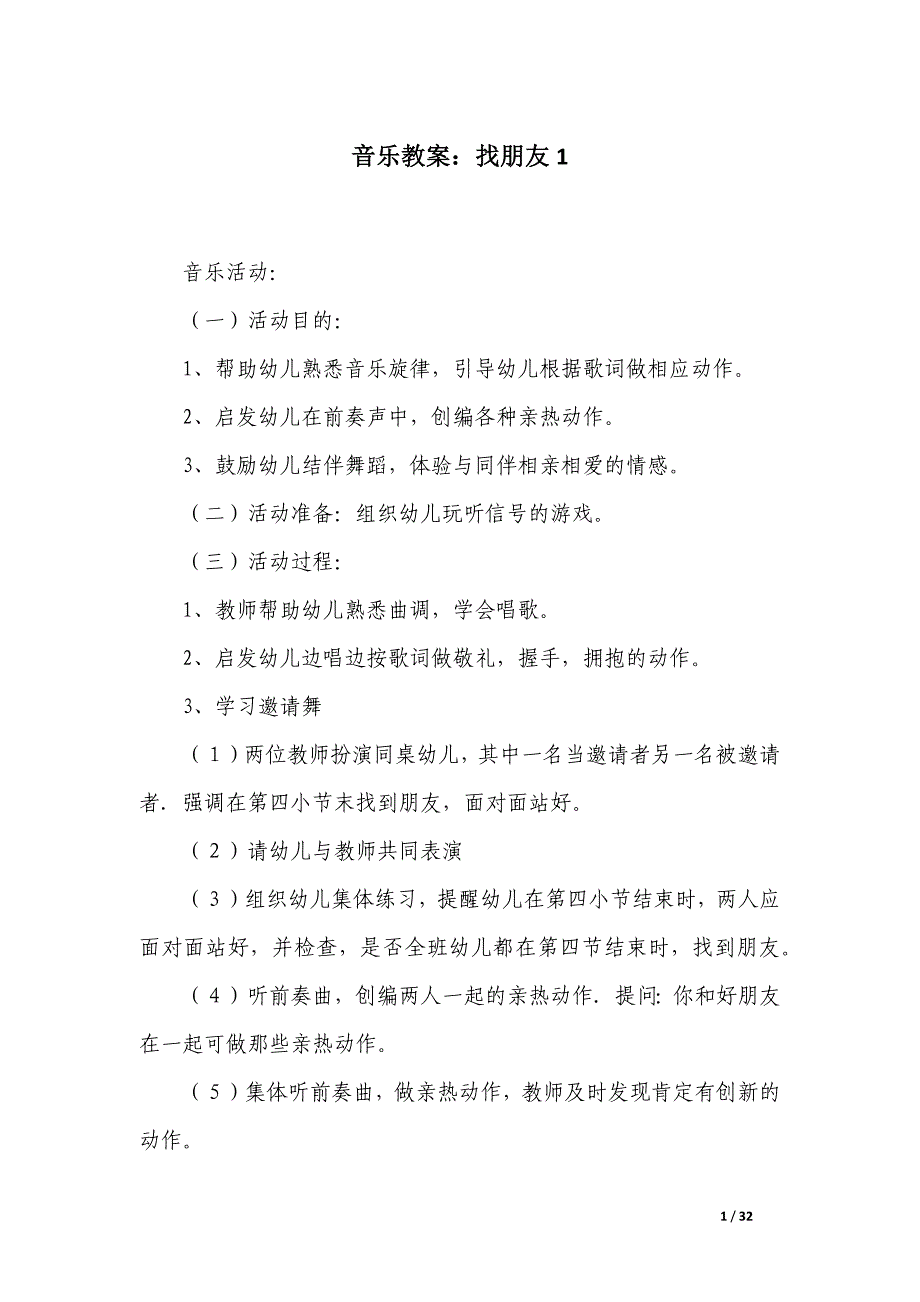 音乐教案：找朋友 1
音乐活动：
（一）活动目的：
1、帮助幼儿熟悉音乐旋律，引导幼儿根据歌词做相应动作。
2、启发幼儿在前奏声中，创编各种亲热动作。
3、鼓励幼儿结伴舞蹈，体验与同伴相亲相爱的情感。
（二）活动准备：组织幼儿玩听信号的游戏。
（三）活动过程：
1、教师帮助幼儿熟悉曲调，学会唱歌。
2、启发幼儿边唱边按歌词做敬礼，握手，拥抱的动作。
3、学习邀请舞
（１）两位教师扮演同桌幼儿，其中一名当邀请者另一名被邀请
者．强调在第四小节末找到朋友，面对面站好。
（２）请幼儿与教师共同表演
（３）组织幼儿集体练习，提醒幼儿在第四小节结束时，两人应
面对面站好，并检查，是否全班幼儿都在第四节结束时，找到朋友。
（４）听前奏曲，创编两人一起的亲热动作．提问：你和好朋友
在一起可做那些亲热动作。
（５）集体听前奏曲，做亲热动作，教师及时发现肯定有创新的
动作。
1 / 32